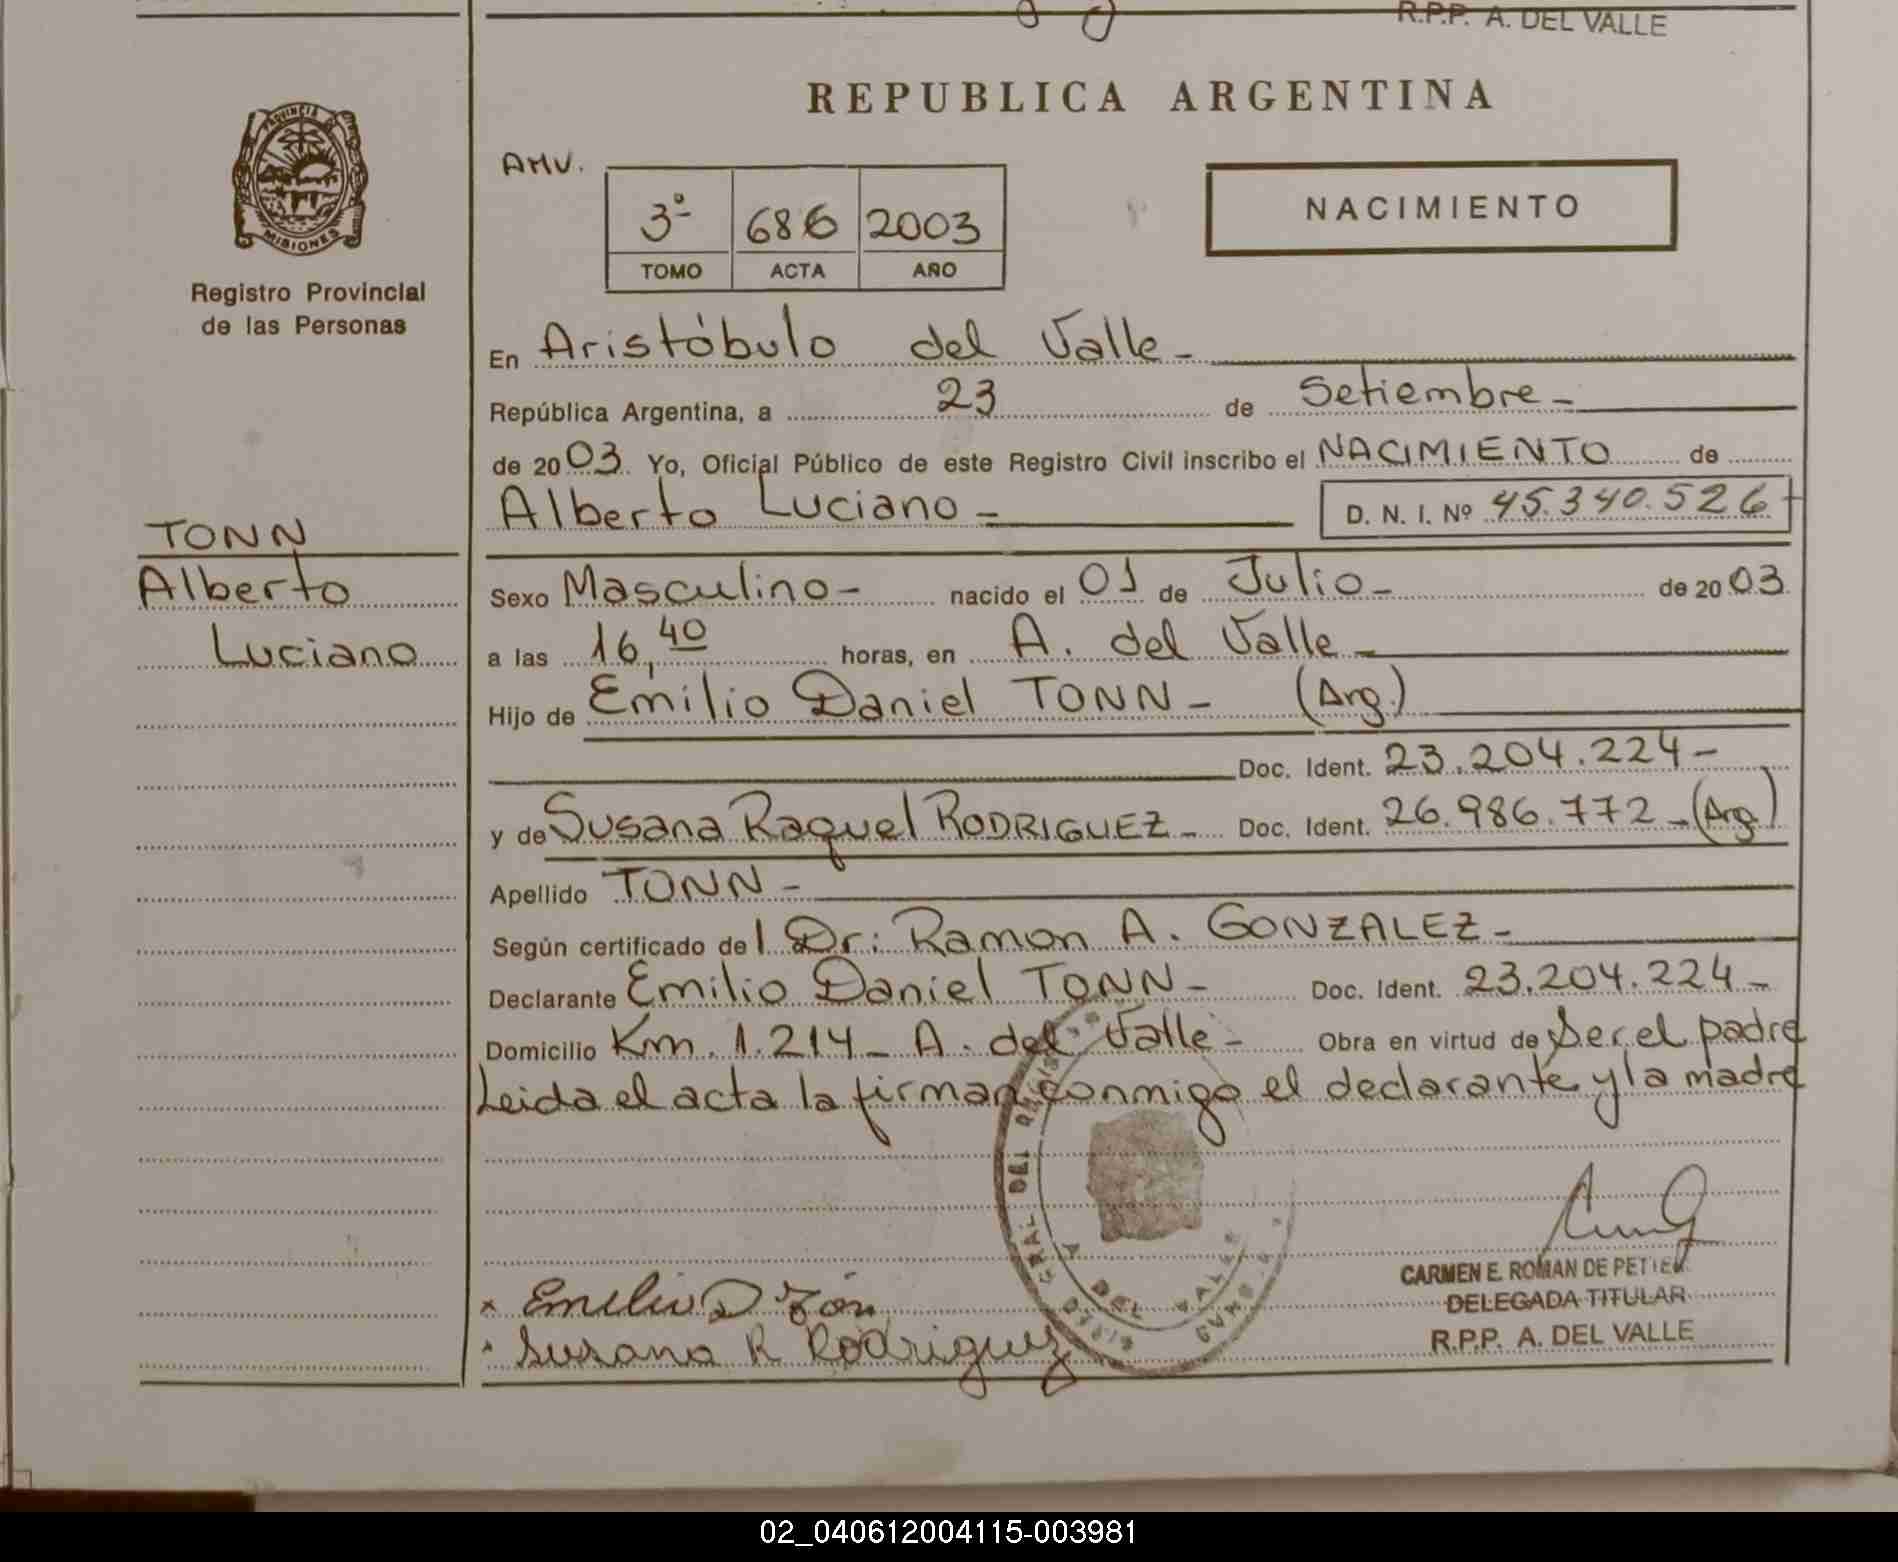 R.P.P. A. DEL VALLE
REPUBLICA ARGENTINA
PROVINCIA DE
MISIONES
Registro Provincial
de las Personas
AMV.
3º 686 2003
TOMO ACTA AÑO
NACIMIENTO
En Aristóbulo del Valle -
República Argentina, a 23 de Setiembre -
de 2003. Yo, Oficial Público de este Registro Civil inscribo el NACIMIENTO de
Alberto Luciano - D. N. I. Nº 45.340.526
TONN
Alberto
Luciano
Sexo Masculino - nacido el 01 de Julio - de 2003.
a las 16,40 horas, en A. del Valle -
Hijo de Emilio Daniel TONN - (Arg.)
Doc. Ident. 23.204.224 -
y de Susana Raquel RODRIGUEZ - Doc. Ident. 26.986.772 - (Arg.)
Apellido TONN -
Según certificado del Dr: Ramon A. GONZALEZ -
Declarante Emilio Daniel TONN - Doc. Ident. 23.204.224 -
Domicilio Km. 1.214 - A. del Valle - Obra en virtud de Ser el padre
Leida el acta la firman conmigo el declarante y la madre
GRAL DEL
A DEL VALLE
CARMEN E. ROMAN DE
DELEGADA TITULAR
R.P.P. A. DEL VALLE
x Emilio D
x Susana R Rodriguez
02_040612004115-003981